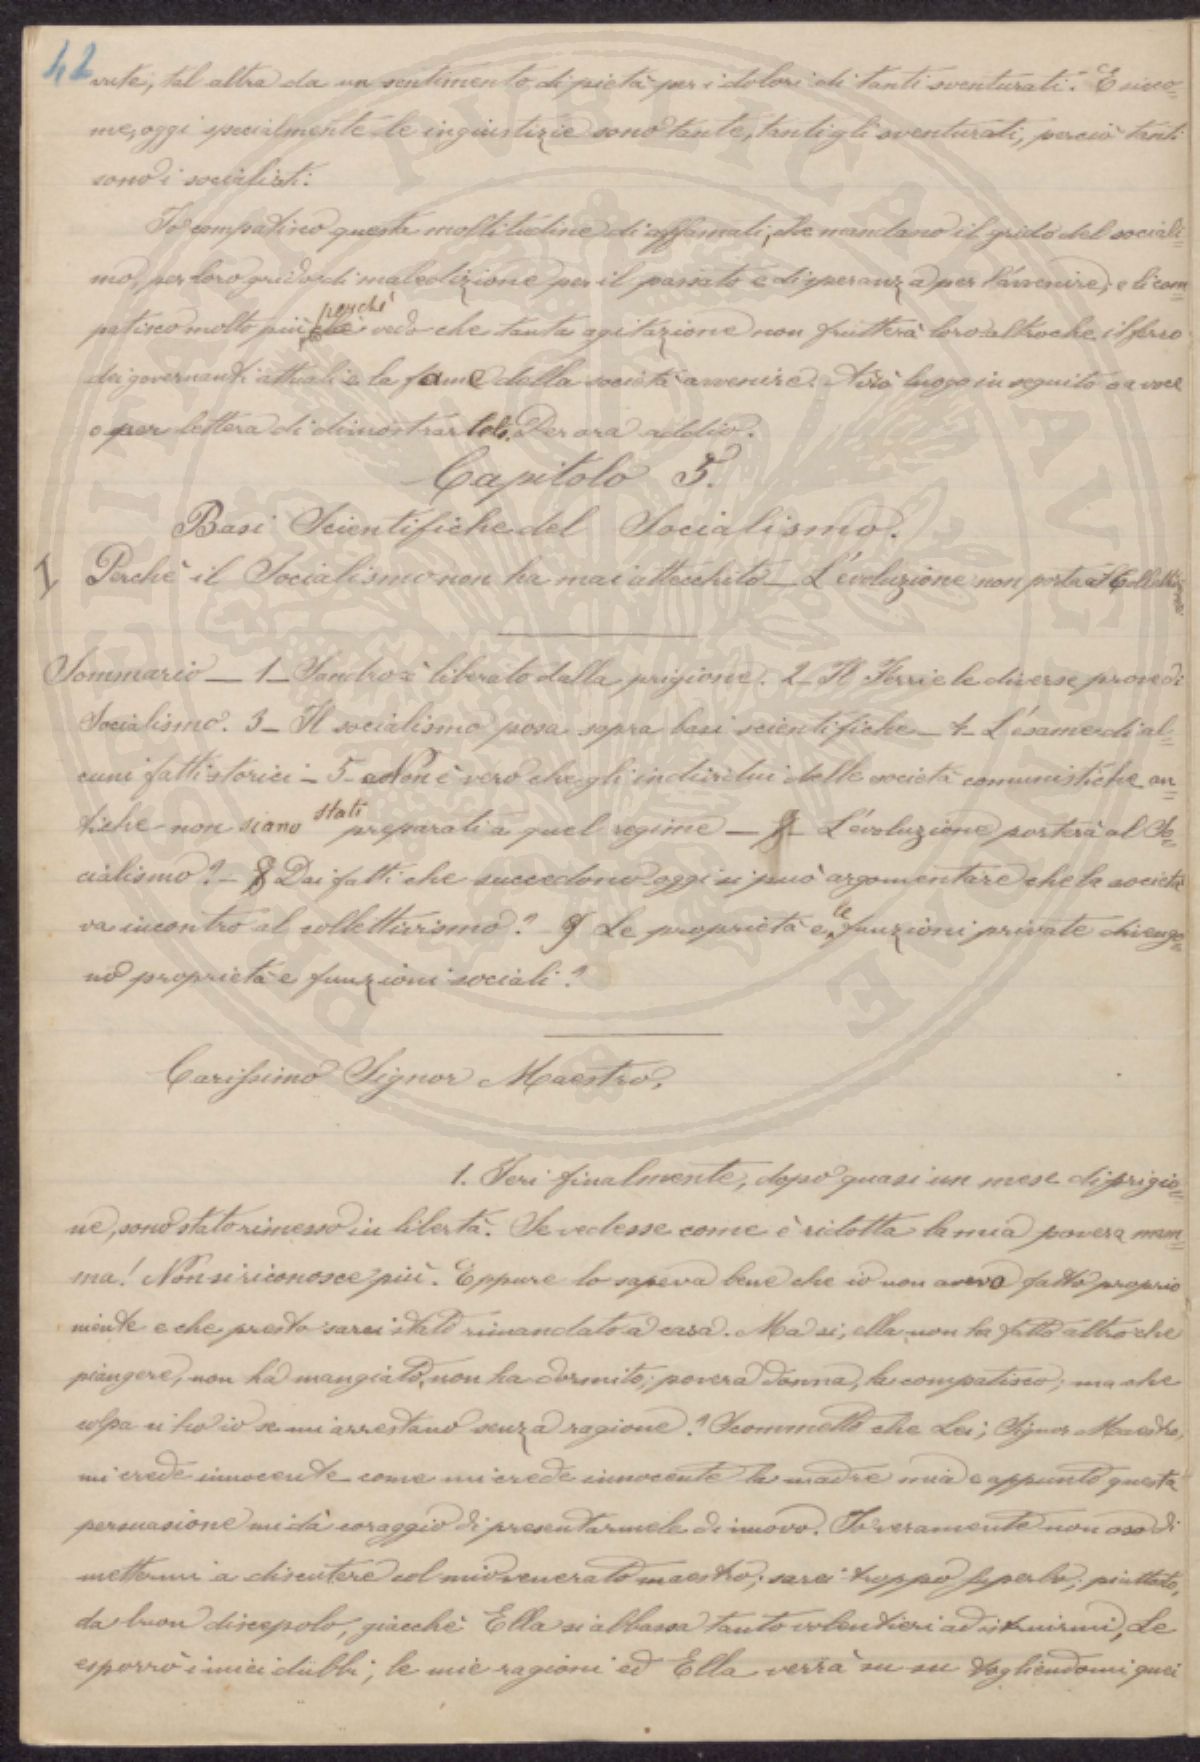 42
vute, tal altra da un sentimento di pietà per i dolori di tanti sventurati. E sicco=
me, oggi specialmente le ingiustizie sono tante, tanti gli sventurati, perciò tanti
sono i socialisti.
Io compatisco questa moltitudine di affamati, che mandano il grido del sociali=
mo, per loro grido di maledizione per il passato e di speranza per l'avvenire, e li com
patisco molto più perchè vedo che tanta agitazione non frutterà loro altro che il ferro
dei governanti attuali e la fame della società avvenire. Avrò luogo in seguito o a voce
o per lettera di dimostrartelo. Per ora addio.
Capitolo 5.
Basi Scientifiche del Socialismo.
I Perchè il Socialismo non ha mai attecchito — L'evoluzione non porta al Collettivismo
Sommario — 1 — Sandro è liberato dalla prigione. 2 — Il Ferri e le diverse prove di
Socialismo. 3 — Il socialismo posa sopra basi scientifiche — 4 — L'esame di al=
cuni fatti storici — 5 — Non è vero che gli individui delle società comunistiche an=
tiche non siano stati preparati a quel regime — L'evoluzione porterà al So=
cialismo? — Dai fatti che succedono oggi si può argomentare che la società
va incontro al collettivismo? — Le proprietà e le funzioni private divengo=
no proprietà e funzioni sociali?
Carissimo Signor Maestro,
1. Ieri finalmente, dopo quasi un mese di prigio=
ne, sono stato rimesso in libertà. Se vedesse come è ridotta la mia povera mam=
ma! Non si riconosce più. Eppure lo sapeva bene che io non aveva fatto proprio
niente e che presto sarei stato rimandato a casa. Ma si, ella non ha fatto altro che
piangere, non ha mangiato, non ha dormito; povera donna, la compatisco; ma che
colpa ci ho io se mi arrestano senza ragione? Scommetto che Lei, Signor Maestro,
mi crede innocente come mi crede innocente la madre mia e appunto questa
persuasione mi dà coraggio di presentarmele di nuovo. Io veramente non oso di
mettermi a discutere col mio venerato maestro; sarei troppo superbo; piuttosto,
da buon discepolo, giacchè Ella si abbassa tanto volentieri ad istruirmi, Le
esporrò i miei dubbi, le mie ragioni ed Ella verrà su su togliendomi quei